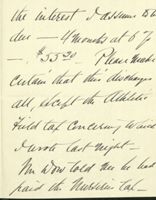 the interest I assume to be
due — 4 months at 6 %
— $55.20. Please make
certain that this discharges
all, except the Athletic
Field tax concerning which
I wrote last night —
Mr Dow told me he had
paid the Nurseries tax —